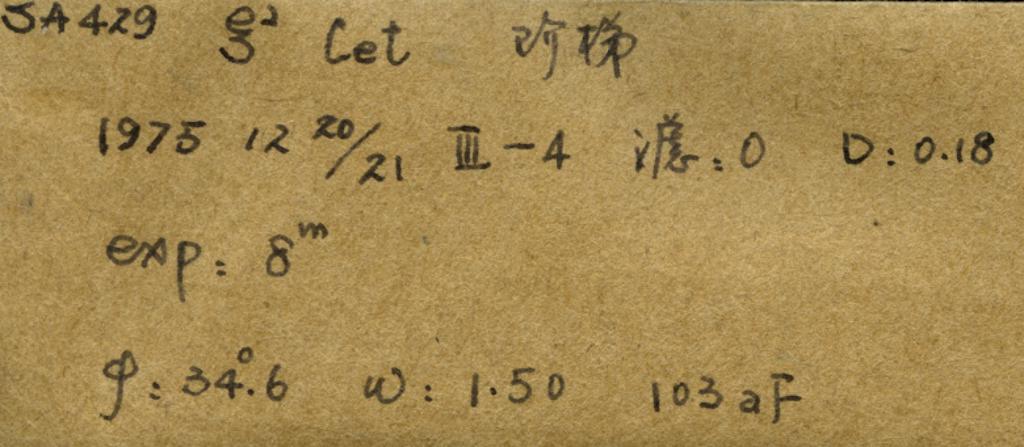 SA429 ξ² Cet 阶梯
1975 12 20/21 Ⅲ-4 滤:0 D:0.18
exp: 8ᵐ
φ: 34°.6 w: 1.50 103aF